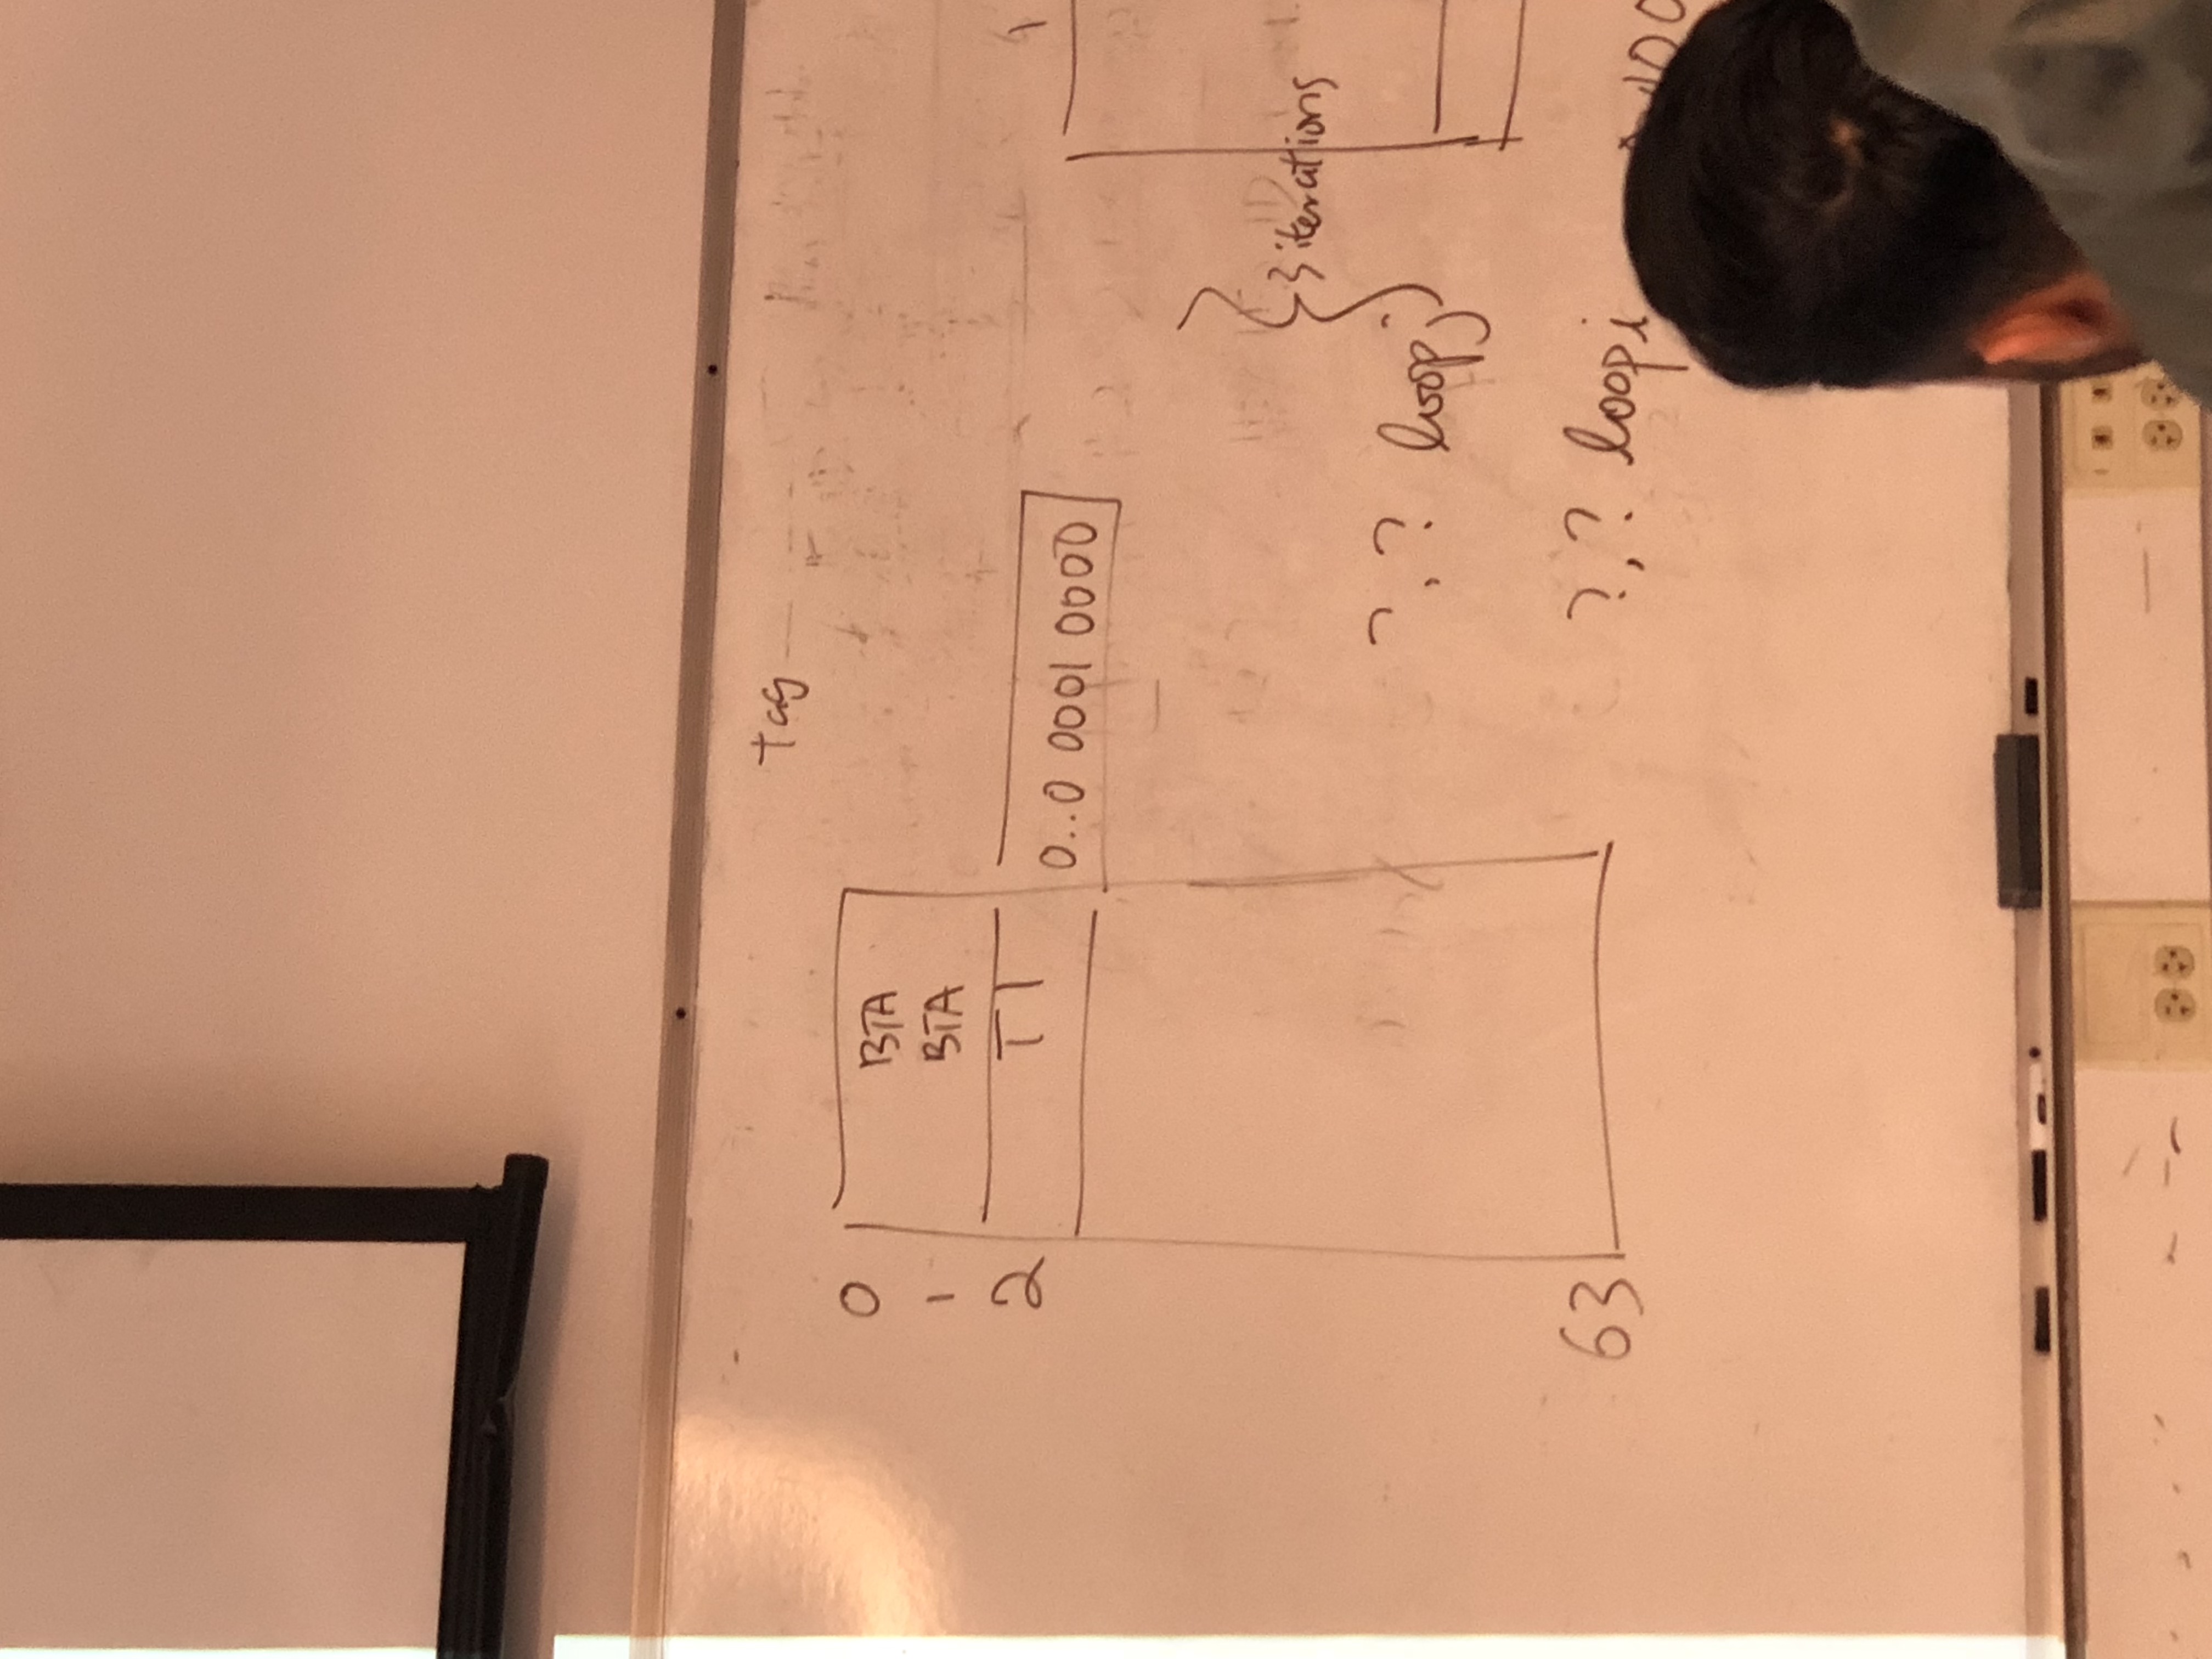 tag
0 BTA
1 BTA
2 TI
0..0 0001 0000
3 iterations
?,? loopj
63
?,? loopi